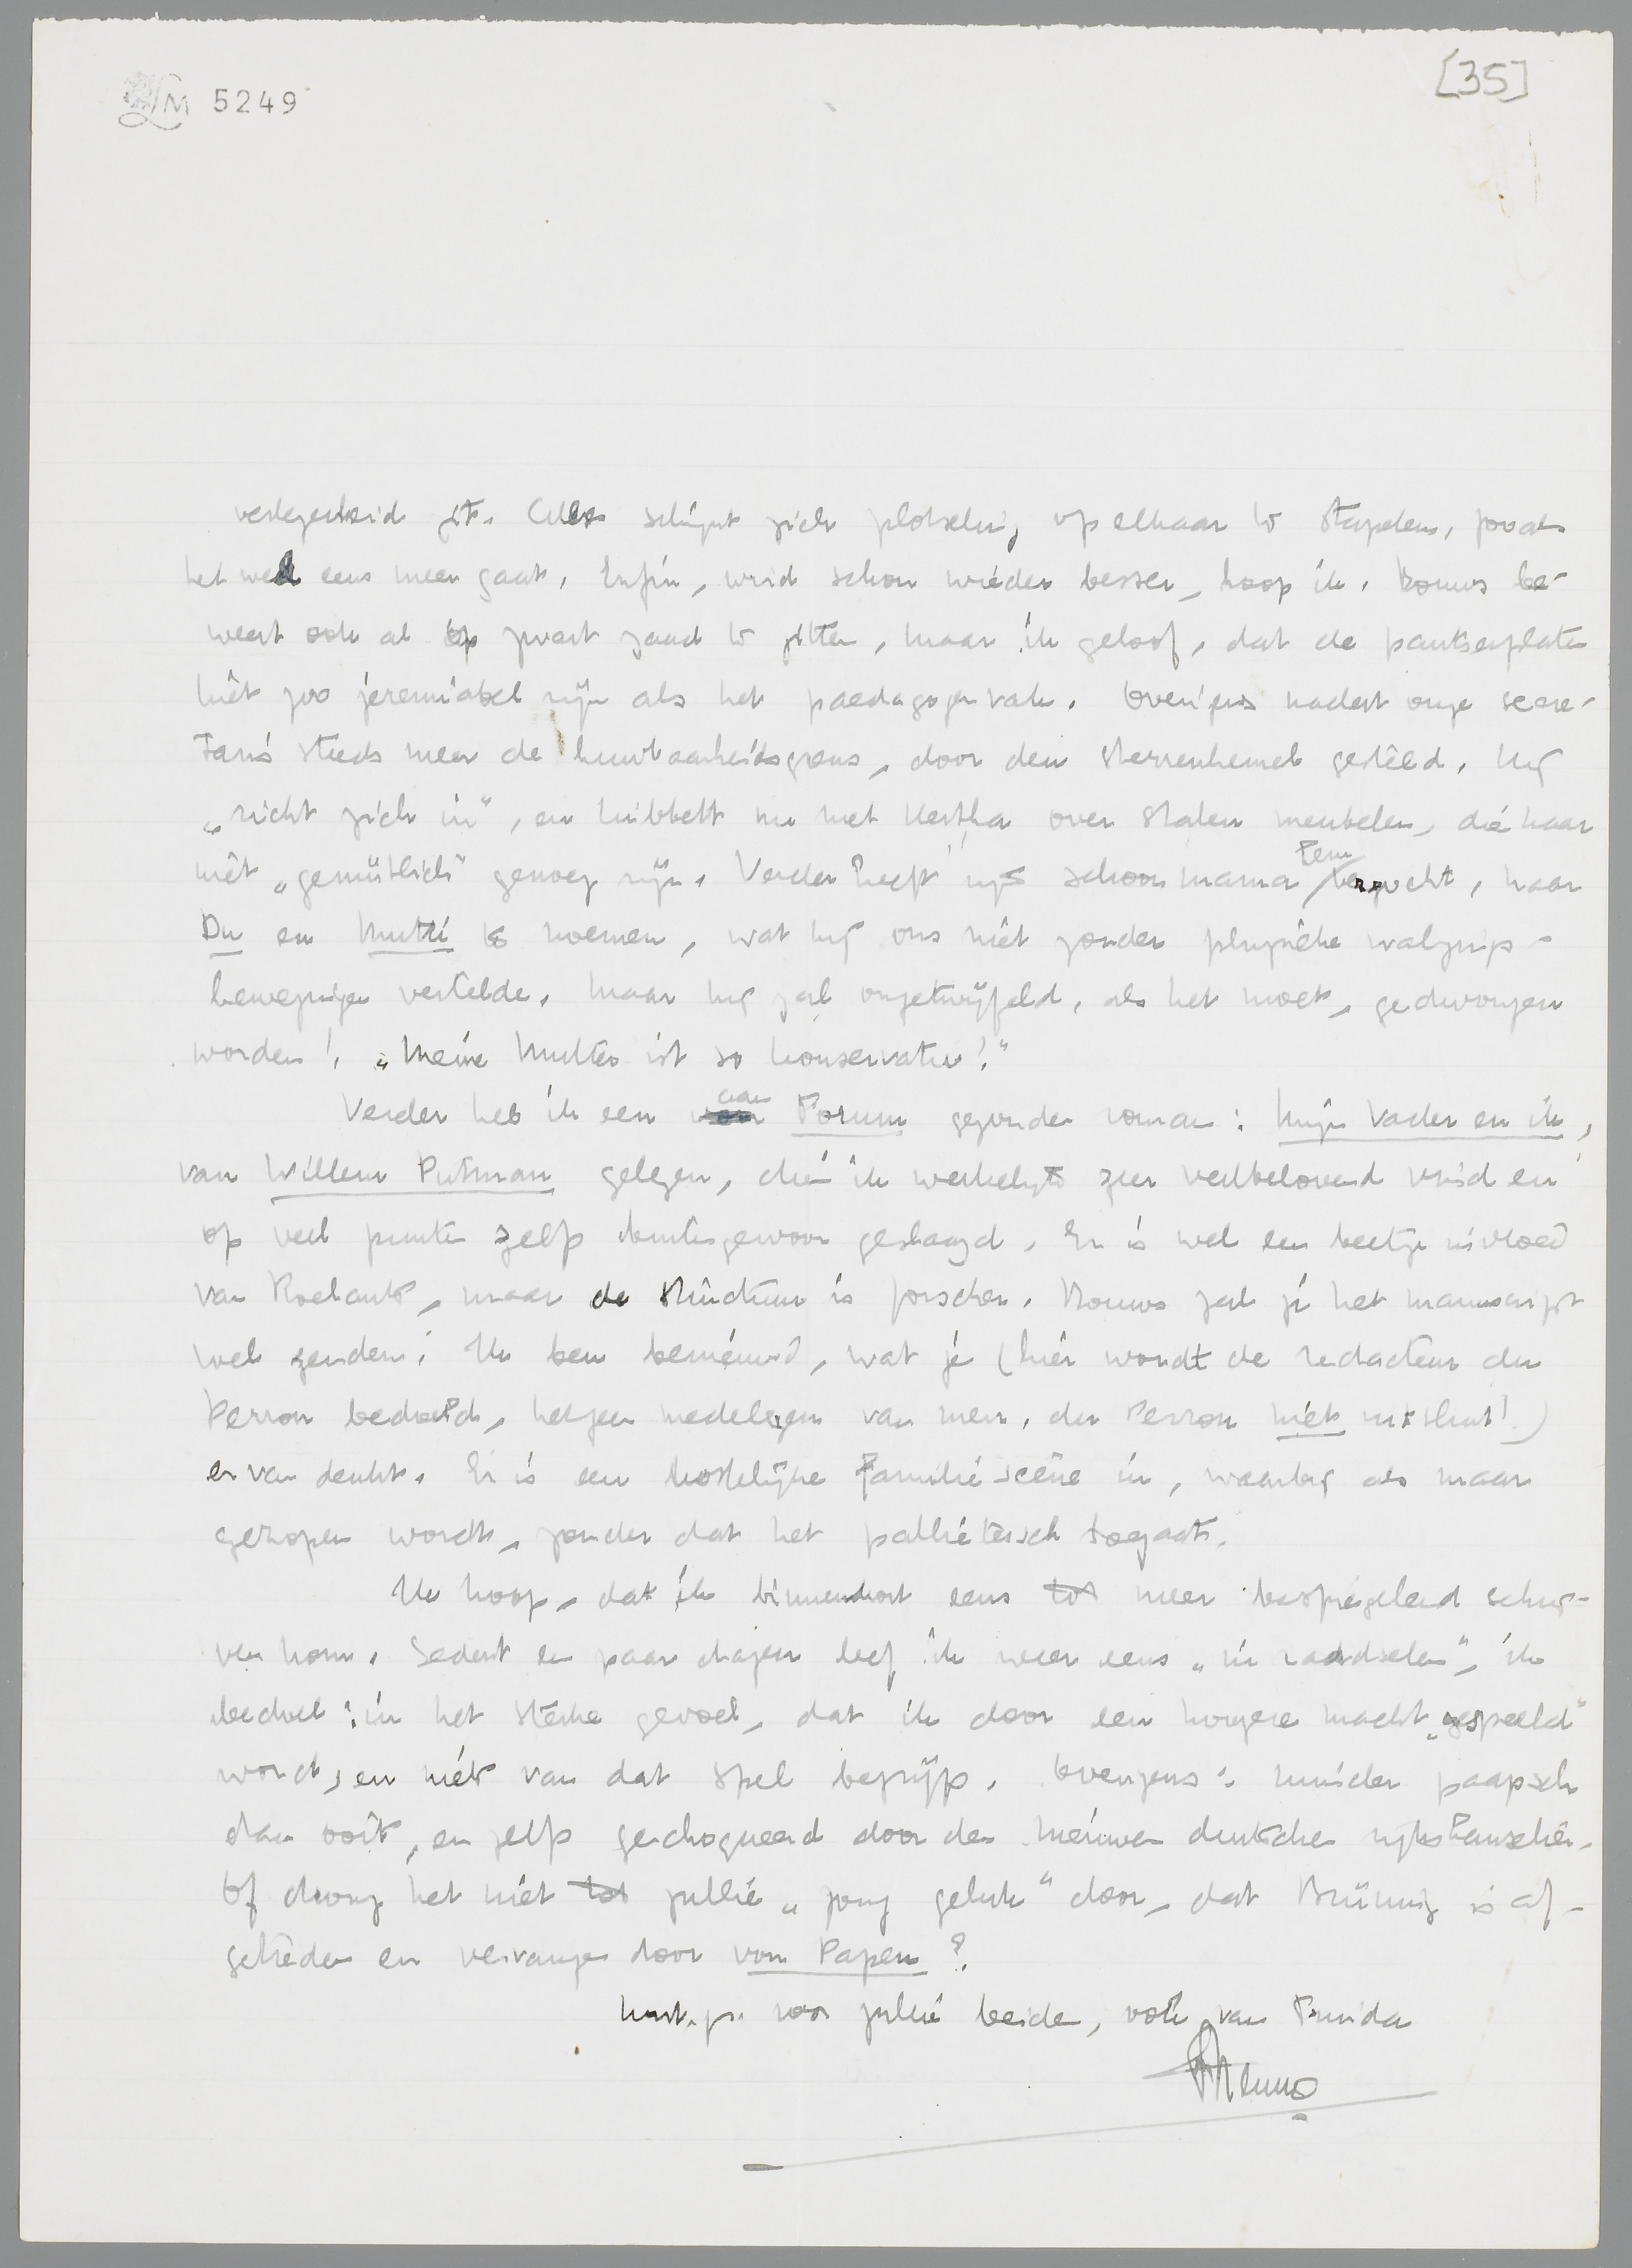 LM 5249
[35]
verlegenheid zit. Alles schijnt zich plotseling op elkaar te stapelen, zooals
het wel eens meer gaat. Enfin, wird schon wieder besser, hoop ik. Bouws be-
weert ook al op zwart zaad te zitten, maar ik geloof, dat de pantserplaten
niet zoo jeremiabel zijn als het paedagogenvak. Overigens nadert onze secre-
taris steeds meer de huwbaarheidsgrens, door den sterrenhemel geleid. Hij
„richt zich in", en kibbelt nu met Hertha over stalen meubelen, die haar
niet „gemütlich" genoeg zijn. Verder heeft zijn schoonmama hem verzocht, haar
Du en Mutti te noemen, wat hij ons niet zonder physieke walgings-
bewegingen vertelde. Maar hij zal ongetwijfeld, als het moet, gedwongen
worden! „Meine Mutter ist so konservativ!"
Verder heb ik een aan Forum gezonden roman: Mijn Vader en ik,
van Willem Putman gelezen, die ik werkelijk zeer veelbelovend vind en
op veel punten zelf buitengewoon geslaagd. Er is wel een beetje invloed
van Roelants, maar de structuur is forscher. Bouws zal je het manuscript
wel zenden. Ik ben benieuwd, wat je (hier wordt de redacteur du
Perron bedoeld, hetgeen medelezen van mevr. du Perron niet uitsluit!)
ervan denkt. Er is een kostelijke familiescène in, waarbij als maar
gezopen wordt, zonder dat het pallieterisch toegaat.
Ik hoop, dat ik binnenkort eens meer bespiegelend schrij-
ven kom. Sedert een paar dagen leef ik weer eens „in raadselen", ik
bedoel: in het sterke gevoel, dat ik door een hoogere macht „gespeeld"
word, en niets van dat spel begrijp. Overigens: minder paapsch
dan ooit, en zelf gechoqueerd door den nieuwen duitschen rijkskanselier.
Of drong het niet jullie „jong geluk" door, dat Brüning is af-
getreden en vervangen door von Papen?
Hart. gr. voor jullie beiden, ook van Truida
Menno